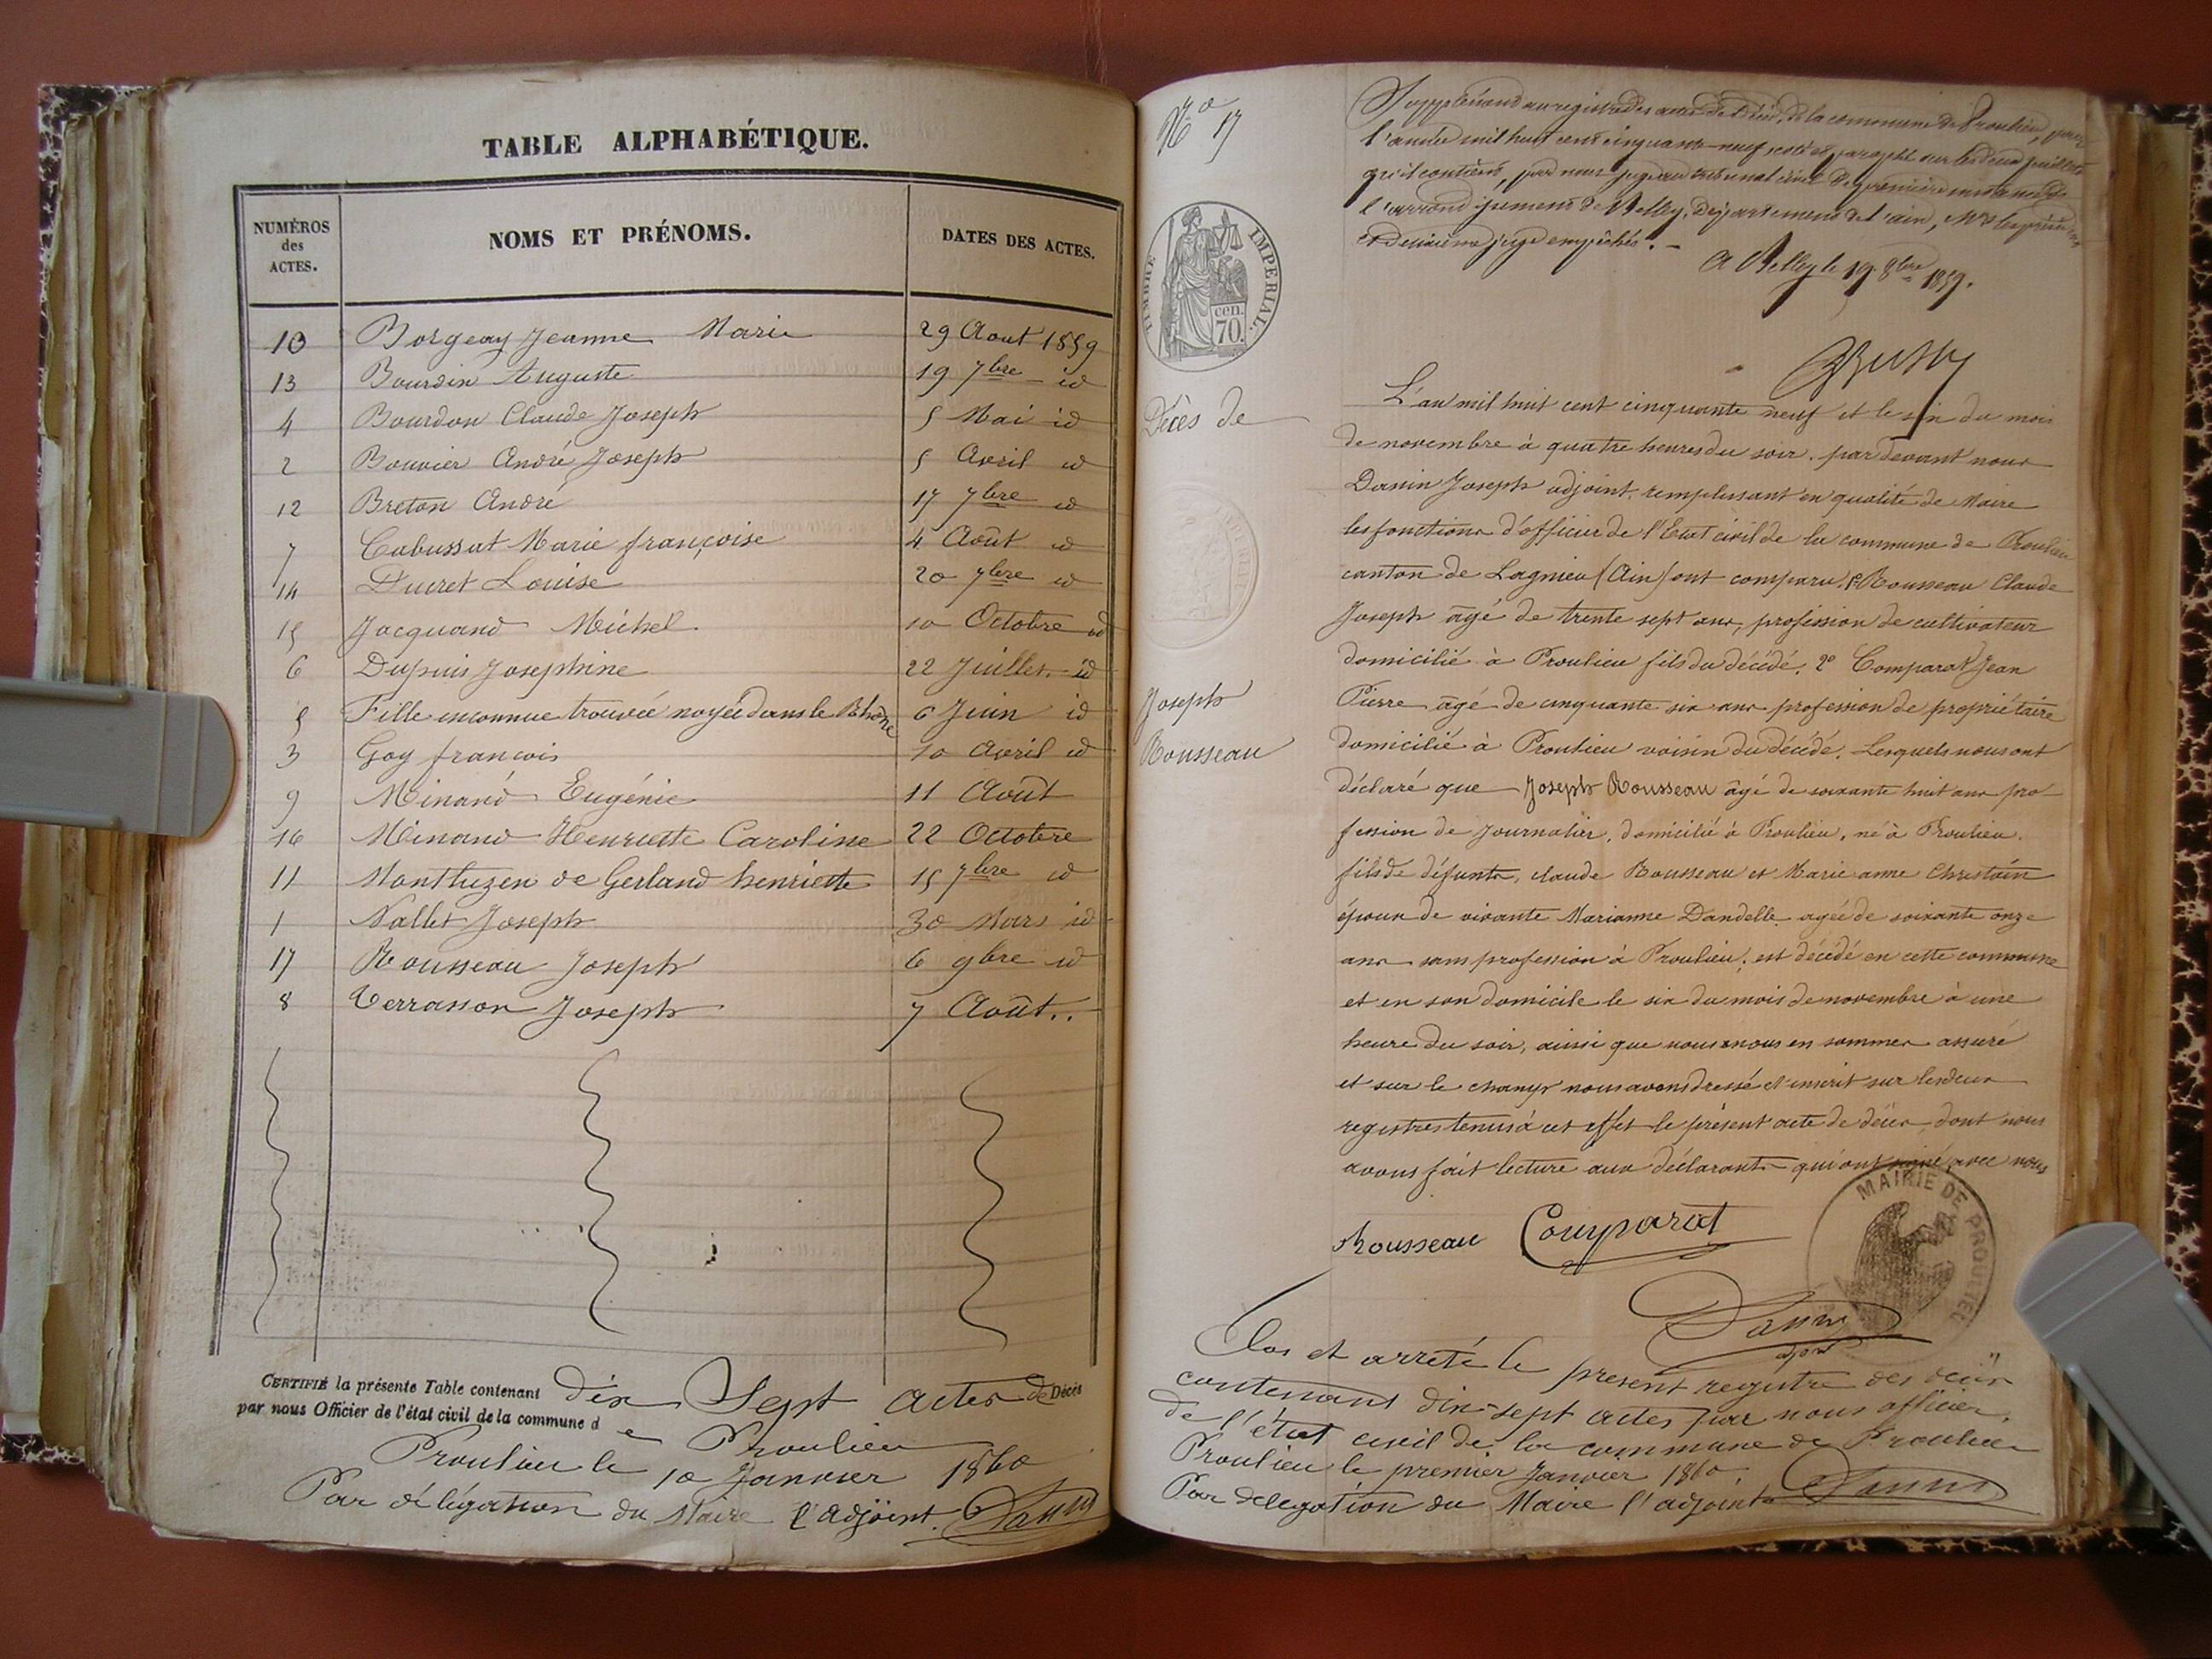 TABLE ALPHABÉTIQUE.
NUMÉROS des ACTES. NOMS ET PRÉNOMS. DATES DES ACTES.
10 Borgeay Jeanne Marie 29 Aout 1859
13 Bourdin Auguste 19 7bre id
4 Bourdon Claude Joseph 5 Mai id
2 Bouvier André Joseph 5 Avril id
12 Breton André 17 7bre id
7 Cabussat Marie françoise 4 Août id
14 Ducret Louise 20 7bre id
15 Jacquand Michel 10 Octobre id
6 Dupuis Josephine 22 Juillet id
5 Fille inconnue trouvée noyée dans le Rhône 6 Juin id
3 Goy francois 10 Avril id
9 Minand Eugénie 11 Août
16 Minand Henriette Caroline 22 Octobre
11 de Gerland henriette 15 7bre id
1 Nallet Joseph 30 Mars id
17 Rousseau Joseph 6 9bre id
8 Terrasson Joseph 7 Août..
CERTIFIÉ la présente Table contenant dix Sept actes de Décès
par nous Officier de l'état civil de la commune d e Proulieu
Proulieu le 10 Janvier 1860
Par délégation du Maire l'adjoint. Danin
No 17
Supplément au registre des actes de Décès, de la commune de Proulieu, pour
l'année mil huit cent cinquante-neuf coté et paraphé sur les deux feuillets
qu'il contient, par nous juge au tribunal civil de première instance de
l'arrondissement de Belley, Département de l'ain, Mrs
et deuxième juge empêchés. -
A Belley le 19 8bre 1859.
TIMBRE IMPERIAL.
cen. 70.
Décès de
Joseph
Rousseau
L'an mil huit cent cinquante neuf et le six du mois
de novembre à quatre heures du soir. par devant nous
Danin Joseph adjoint, remplissant en qualité de Maire
les fonctions d'officier de l'Etat civil de la commune de Proulieu
canton de Lagnieu (Ain) ont comparu. 1º Rousseau Claude
Joseph âgé de trente sept ans, profession de cultivateur
domicilié à Proulieu fils du décédé. 2º Comparat Jean
Pierre âgé de cinquante six ans profession de propriétaire
domicilié à Proulieu voisin du décédé. Lesquels nous ont
déclaré que Joseph Rousseau âgé de soixante huit ans pro-
fession de Journalier, domicilié à Proulieu, né à Proulieu.
fils de défunts, claude Rousseau et Marie anne Christain
époux de vivante Marianne Dandelle agée de soixante onze
ans sans profession à Proulieu, est décédé en cette commune
et en son domicile le six du mois de novembre à une
heure du soir, ainsi que nous nous en sommes assuré
et sur le champ nous avons dressé et inscrit sur les deux
registres tenus à cet effet le présent acte de décès, dont nous
avons fait lecture aux déclarants qui ont signé avec nous
Rousseau Comparat
MAIRIE DE PROULIEU
Danin
adjoint
Clos et arrêté le present registre des décès
contenant dix-sept actes par nous officier
de l'état civil de la commune de Proulieu
Proulieu le premier Janvier 1860.
Par delegation du Maire l'adjoint Danin